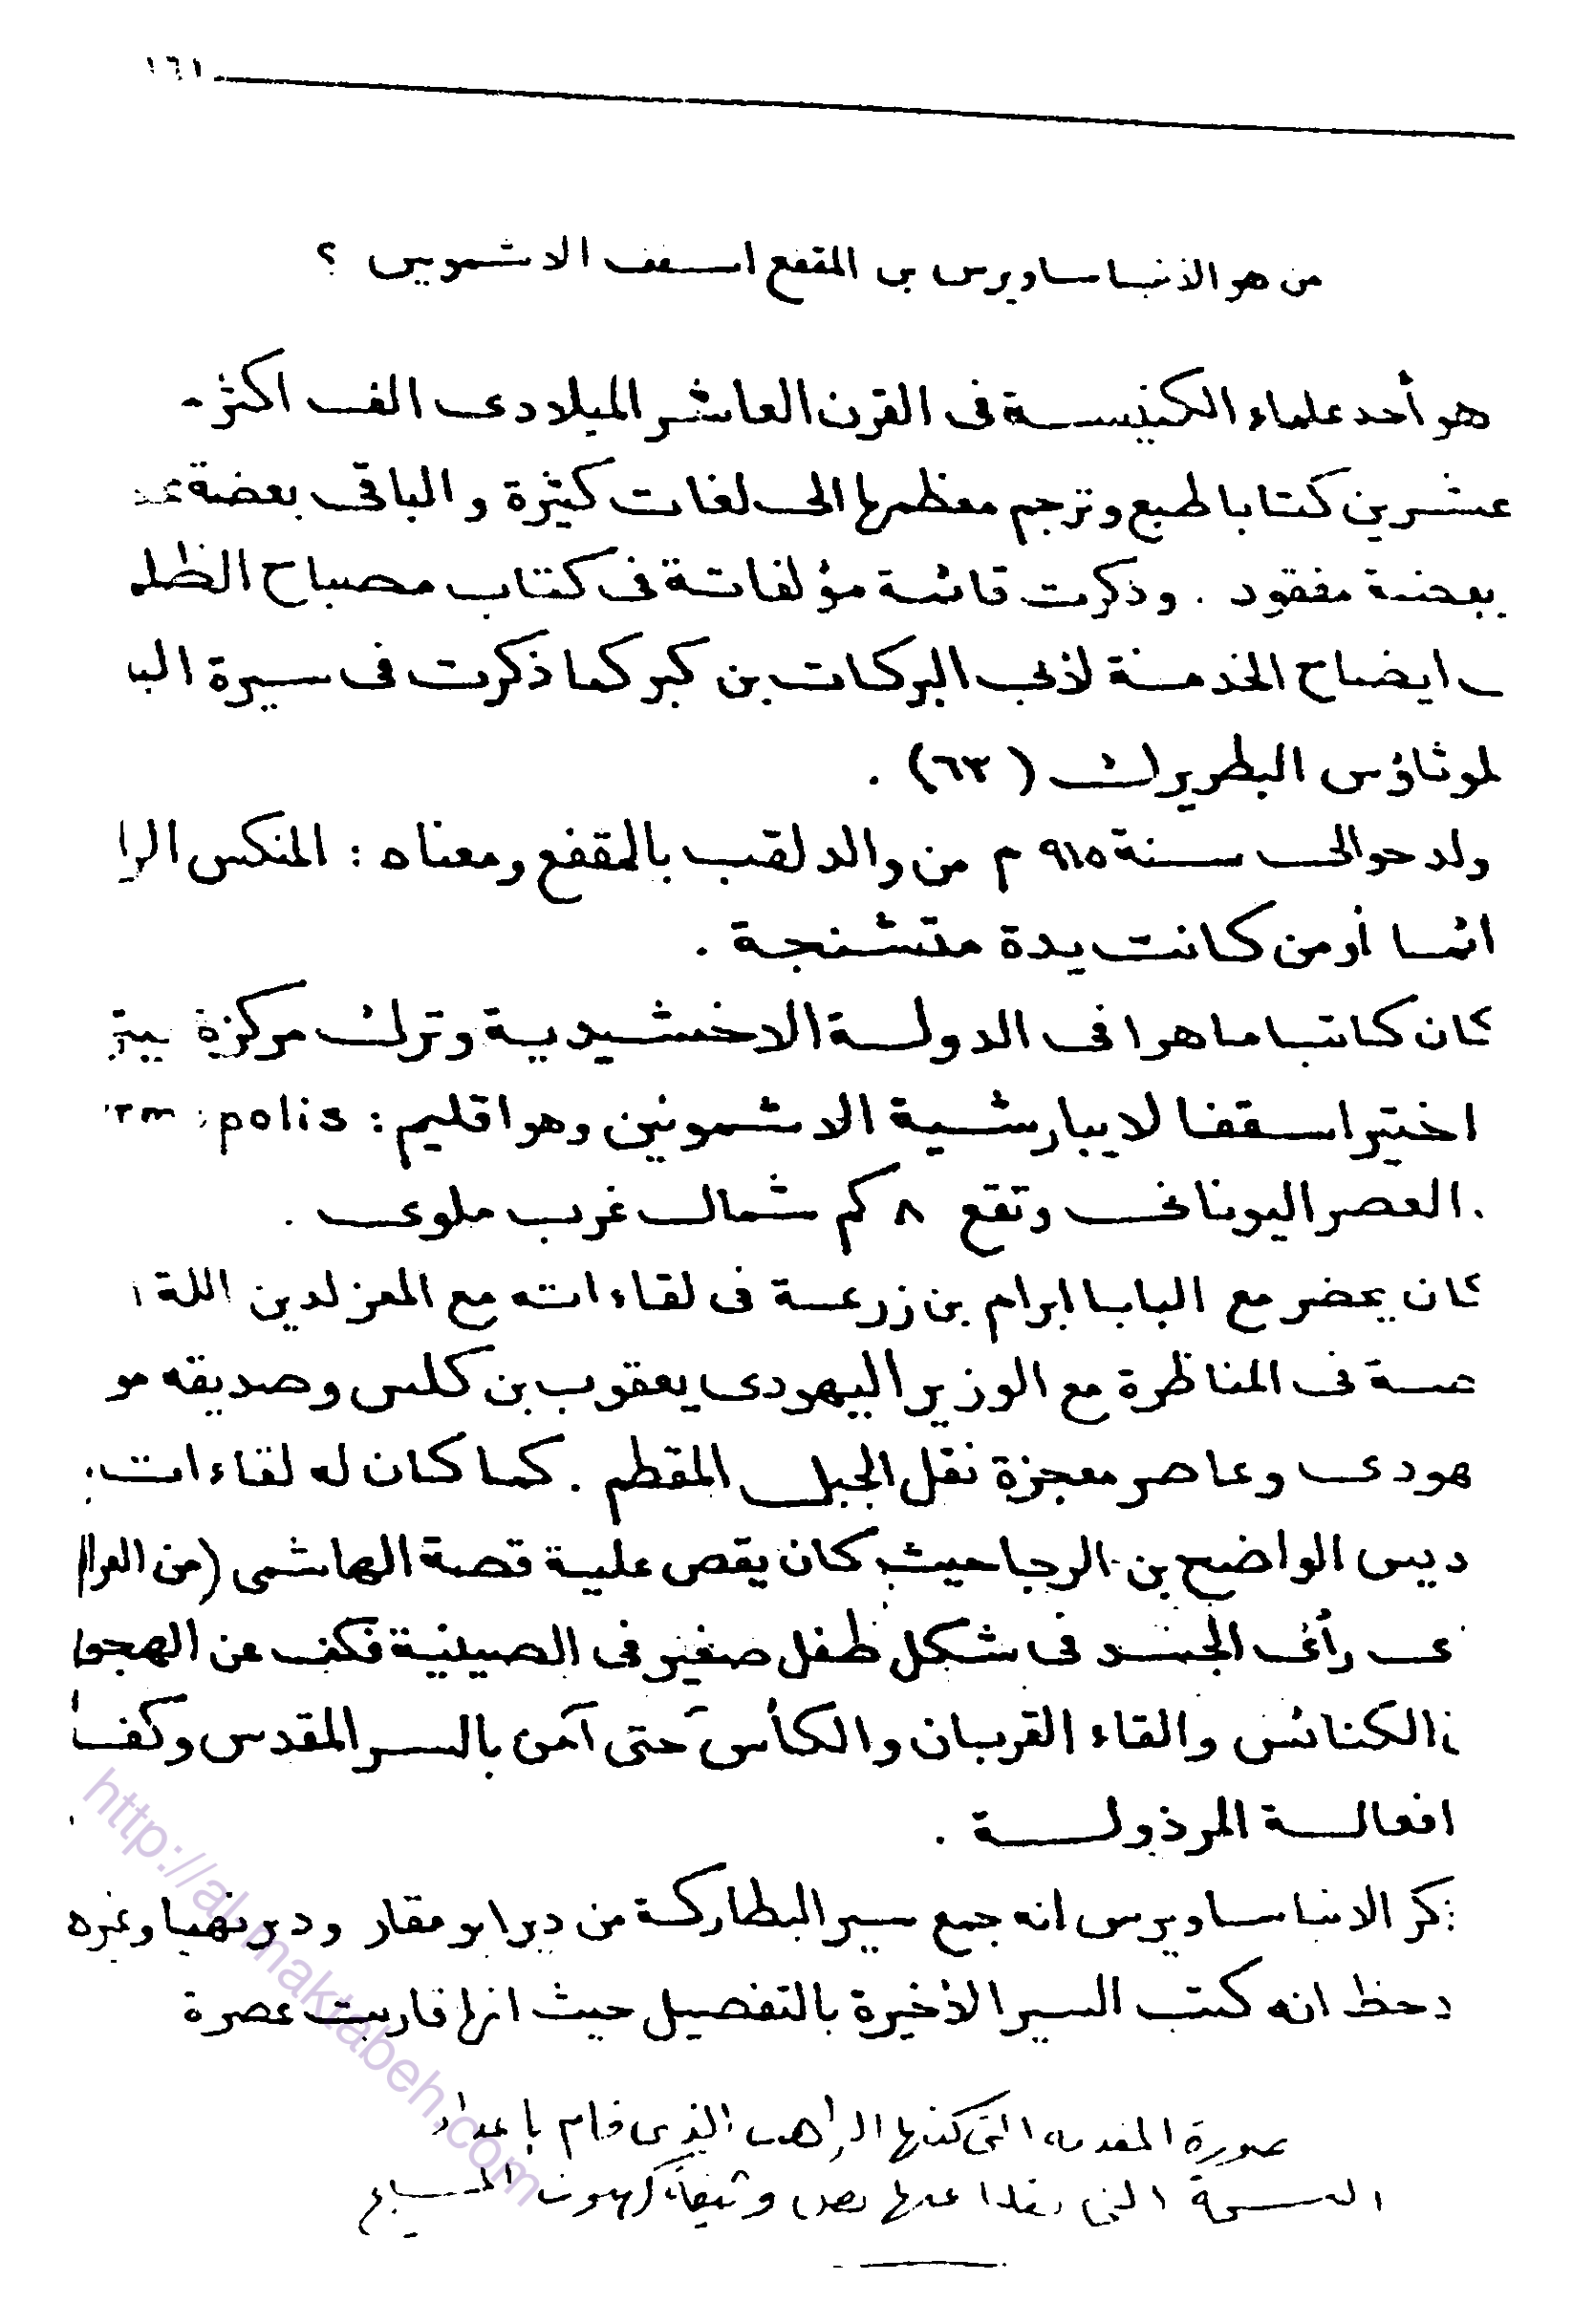 ١٦١
من هو الأنبا ساويرس بن المقفع اسقف الاشمونين ؟
هو أحد علماء الكنيسة فى القرن العاشر الميلادى الف اكثر
عشرين كتابا طبع وترجم معظمها الى لغات كثيرة والباقى بعضة
بعضة مفقود . وذكرت قائمة مؤلفاتة فى كتاب مصباح الظلم
ايضاح الخدمة لأبى البركات بن كبر كما ذكرت فى سيرة البا
لموثاؤس البطريرك (٦٣) .
ولد حوالى سنة ٩١٥ م من والد لقب بالمقفع ومعناه : المنكس الرا
ائما أو من كانت يدة متشنجة .
كان كاتبا ماهرا فى الدولة الاخشيدية وترك مركزة
اختير اسقفا لايبارشية الاشمونين وهو اقليم : rm polis
العصر اليونانى وتقع ٨ كم شمال غرب ملوى .
كان يحضر مع البابا ابرام بن زرعة فى لقاءاته مع المعز لدين اللة
صة فى المناظرة مع الوزير اليهودى يعقوب بن كلس وصديقه مو
هودى وعاصر معجزة نقل الجبل المقطم . كما كان له لقاءات
ديس الواضح بن الرجا حيث كان يقص علية قصة الهاشمى (من العرا
ى رأى الجسد فى شكل طفل صغير فى الصينية فكف عن الهجو
الكنائس والقاء القربان والكأس حتى آمن بالسر المقدس وكف
افعالة المرذولة .
ذكر الانبا ساويرس انه جمع سير البطاركة من دير ابو مقار ودير نهيا وغيره
دحظ انه كتب السير الأخيرة بالتفصيل حيث انها قاربت عصرة
صورة المقدمه التى كتبها الراهب الذى قام باعداد
النسخة التى نقلنا عنها نص وثيقة كهنوت المسيح
http://al-maktabeh.com